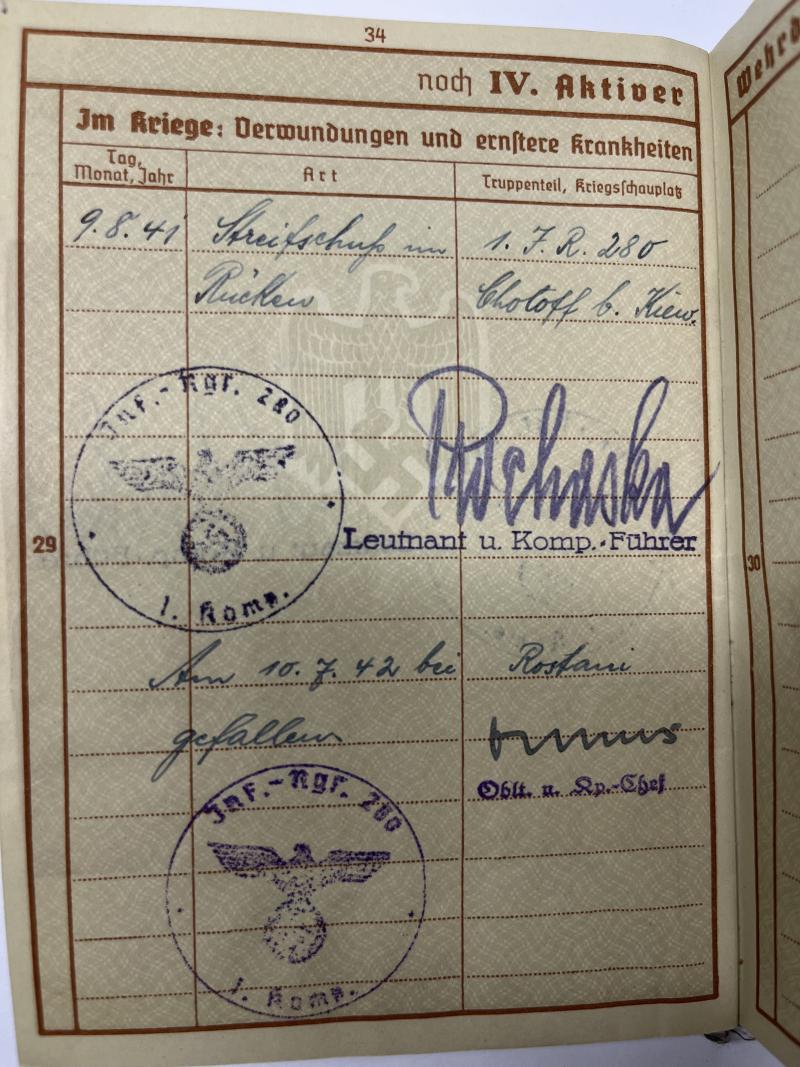 34
noch IV. Aktiver
Im Kriege: Verwundungen und ernstere Krankheiten
Tag, Monat, Jahr
Art
Truppenteil, Kriegsschauplatz
9.8.41 Streifschuß im 1. J. R. 280
Rücken Chotoff b. Kiew.
Inf.-Rgt. 280
1. Komp.
Prochaska
29
Leutnant u. Komp.-Führer
30
Am 10.7.42 bei Rostani
gefallen
Oblt. u. Kp.-Chef
Inf.-Rgt. 280
1. Komp.